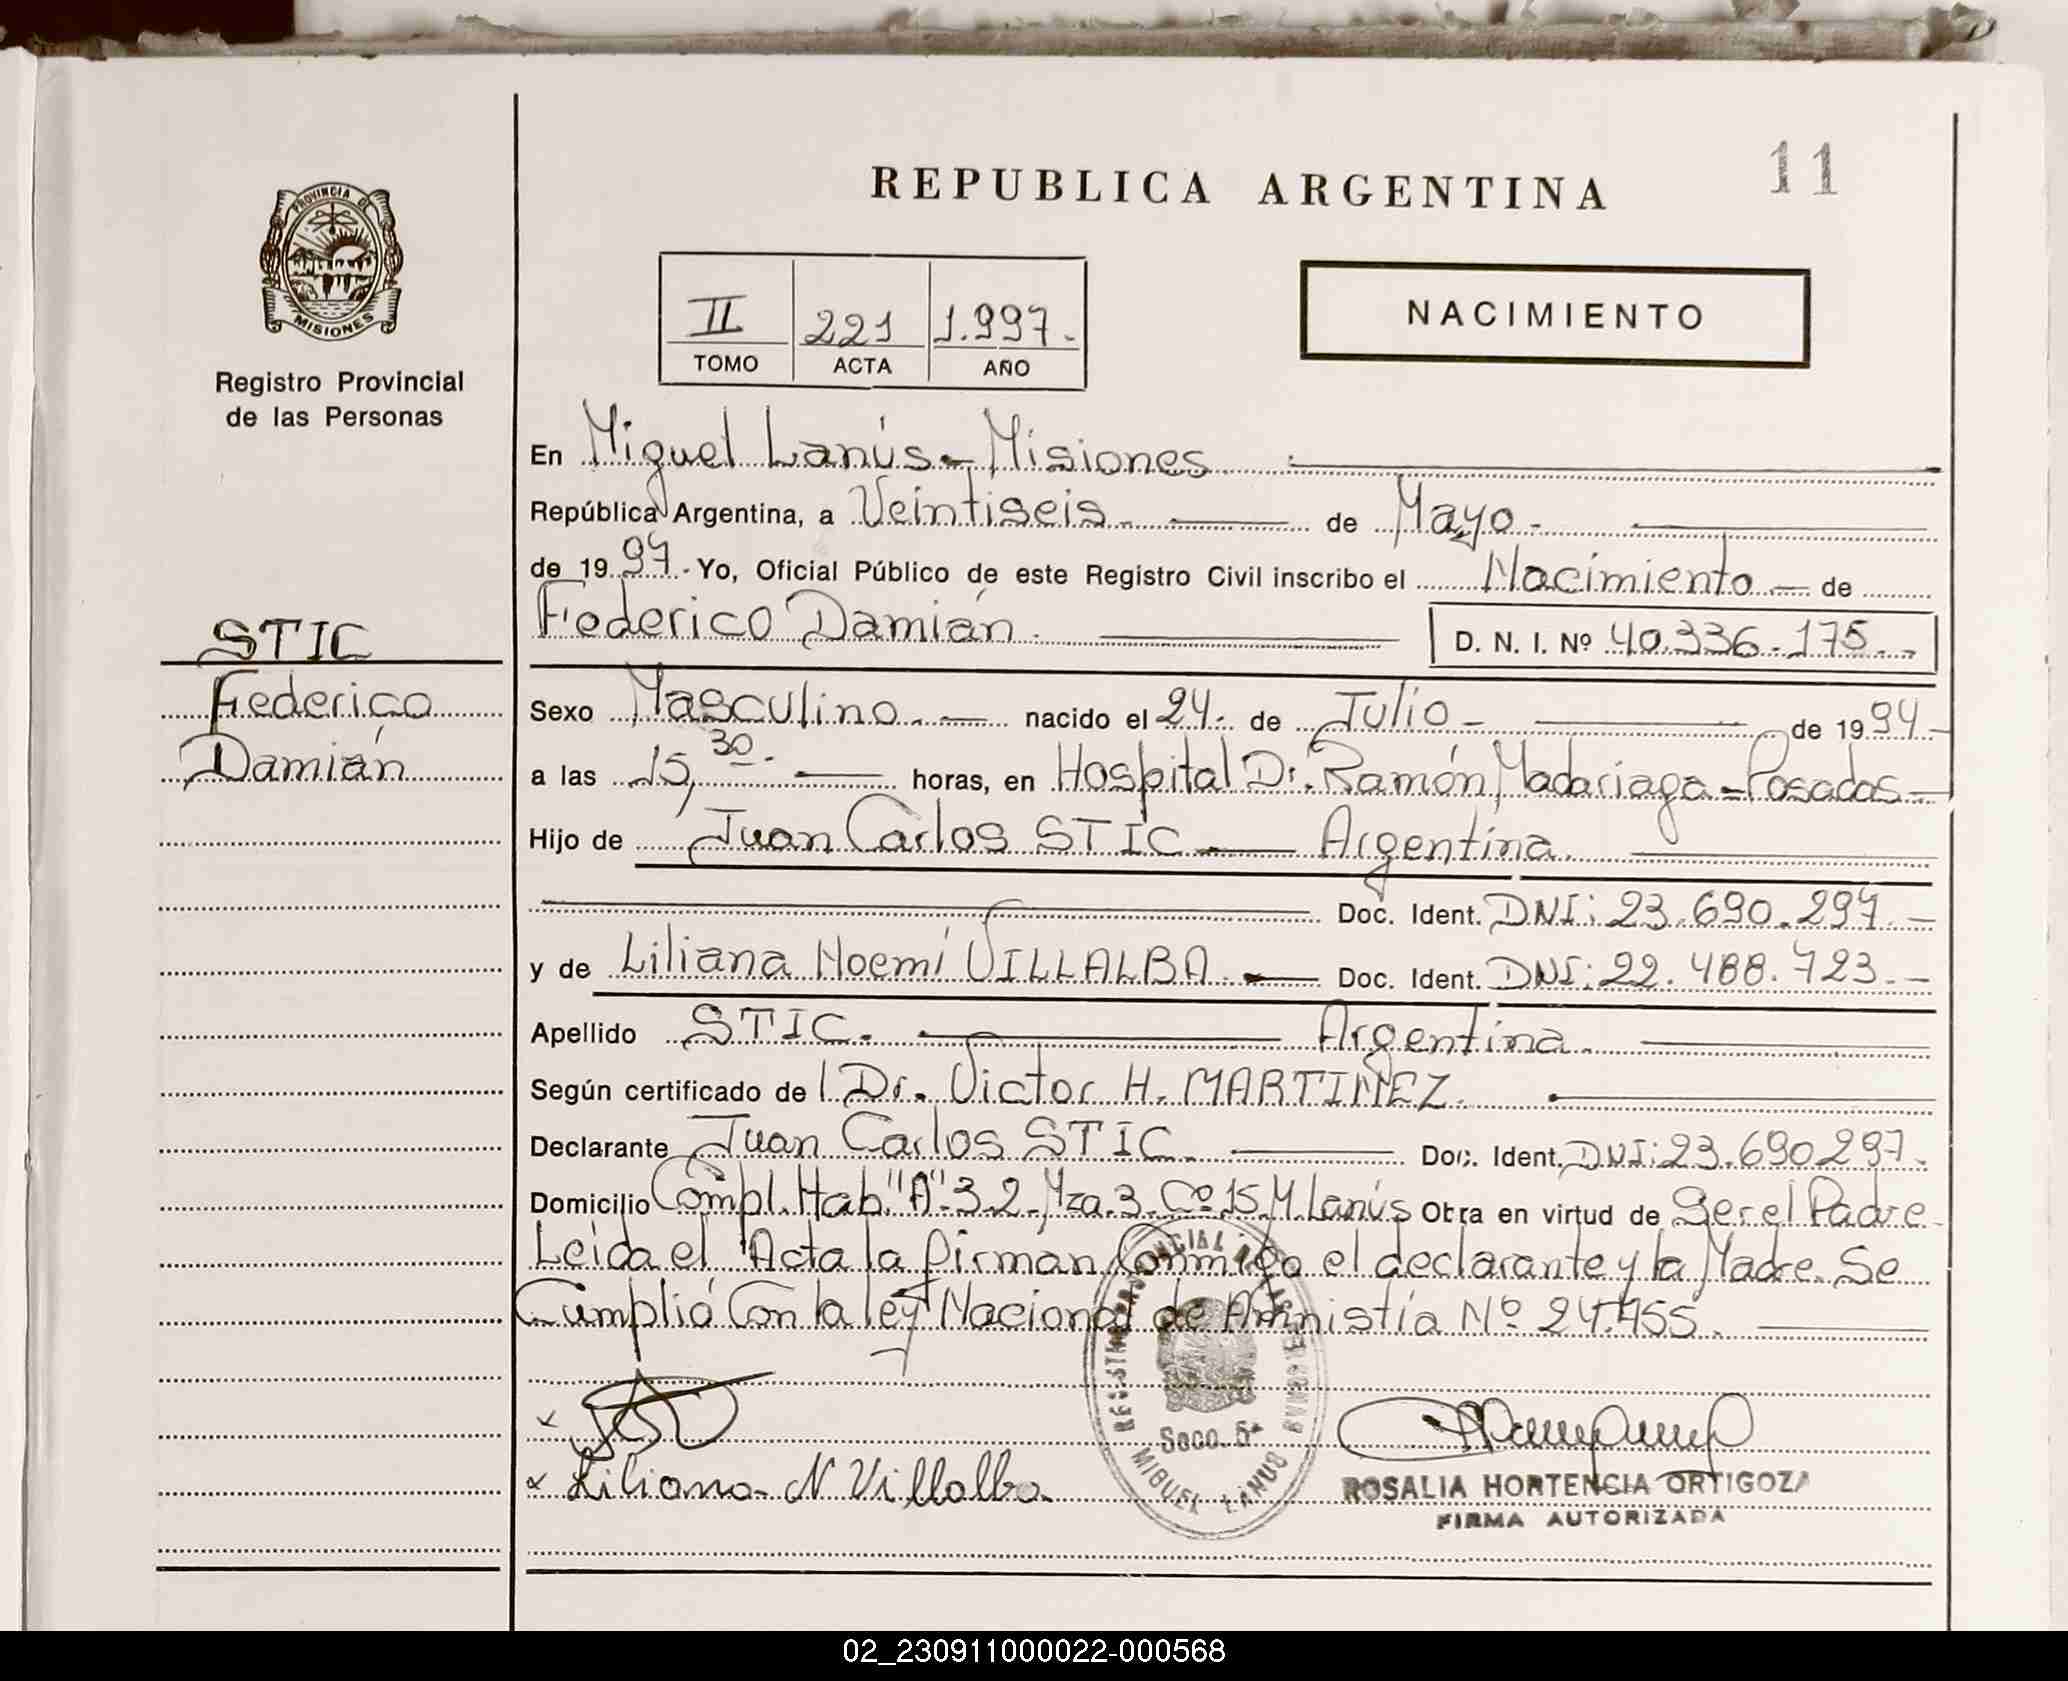 11
REPUBLICA ARGENTINA
PROVINCIA DE
MISIONES
Registro Provincial
de las Personas
II 221 1.997.-
TOMO ACTA AÑO
NACIMIENTO
En Miguel Lanús - Misiones
República Argentina, a Veintiseis de Mayo.-
de 1997.- Yo, Oficial Público de este Registro Civil inscribo el Nacimiento - de
Federico Damián. D. N. I. Nº 40.336.175.-
STIC
Federico
Damián
Sexo Masculino.- nacido el 24. de Julio - de 1994-
a las 15,30.- horas, en Hospital Dr. Ramón Madariaga - Posadas -
Hijo de Juan Carlos STIC - Argentina.
Doc. Ident. DNI: 23.690.297.-
y de Liliana Noemí VILLALBA.- Doc. Ident. DNI: 22.488.723.-
Apellido STIC. Argentina.
Según certificado de l Dr. Victor H. MARTINEZ.
Declarante Juan Carlos STIC. Doc. Ident. DNI: 23.690297.
Domicilio Compl. Hab. "A" 32. Mza. 3. Cº 15 M. Lanús Obra en virtud de Ser el Padre.
Leída el Acta la firman conmigo el declarante y la Madre. Se
Cumplió Con la ley Nacional de Amnistía Nº 24.755.
REGISTRO PROVINCIAL DE LAS PERSONAS
Secc. 5ª
MIGUEL LANUS
Liliana N Villalba
ROSALIA HORTENCIA ORTIGOZA
FIRMA AUTORIZADA
02_230911000022-000568